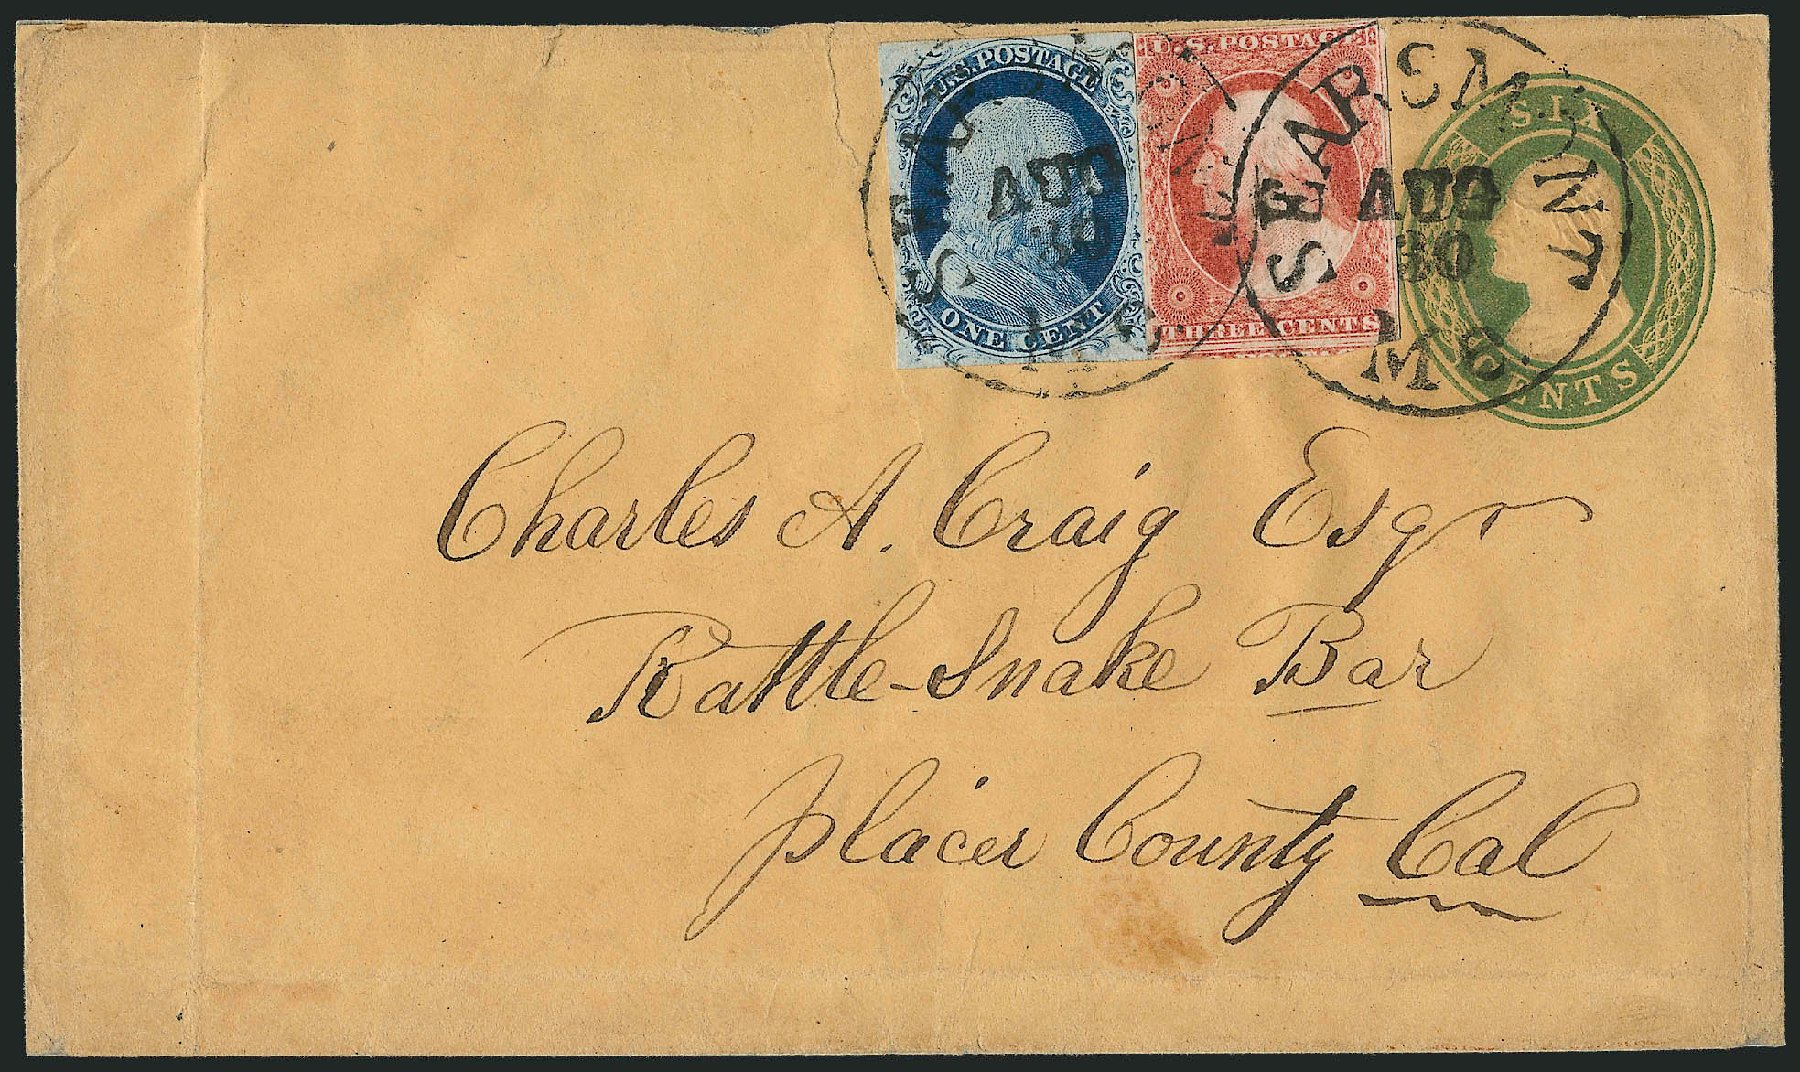 U.S. POSTAGE
ONE CENT
U.S. POSTAGE
THREE CENTS
SIX
CENTS
SEARSMONT
AUG
30
ME
SEARSMONT
AUG
30
ME
Charles A. Craig Esqr
Rattle-Snake Bar
Placer County Cal